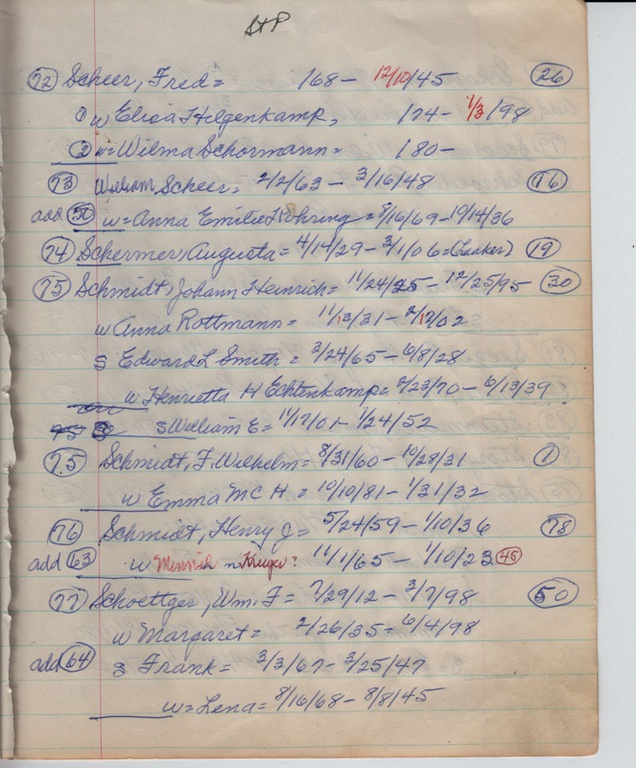 St P
72 Scheer, Fred = 168 - 12/10/45 26
① w Elisa Helgenkamp, 174 - 1/3/98
② w = Wilma Schormann = 180 -
73 William Scheer = 2/2/63 - 3/16/48 76
add 50 w = Anna Emilie Kohring = 8/16/69 - 10/14/36
74 Schermer, Augusta = 4/14/29 - 3/1/06 = (Laaker) 19
75 Schmidt, Johann Heinrich = 11/24/25 - 12/25/95 30
w Anna Rottmann = 11/13/31 - 2/12/02
s Edward L Smith = 3/24/65 - 6/8/28
w Henrietta H Echtenkamp = 2/23/70 - 6/13/39
s William E = 11/17/01 - 1/24/52
7.5 Schmidt, F. Wilhelm = 8/31/60 - 10/28/31 1
w Emma Mc H. = 10/10/81 - 1/31/32
76 Schmidt, Henry J = 5/24/59 - 1/10/36 78
add 63 w Minnie n Kruge? 11/1/65 - 1/10/23 45
77 Schoettger, Wm. F = 7/29/12 - 3/7/98 50
w Margaret = 2/26/35 = 6/4/98
add 64 s Frank = 3/3/67 - 3/25/47
w = Lena = 8/16/68 - 8/8/45